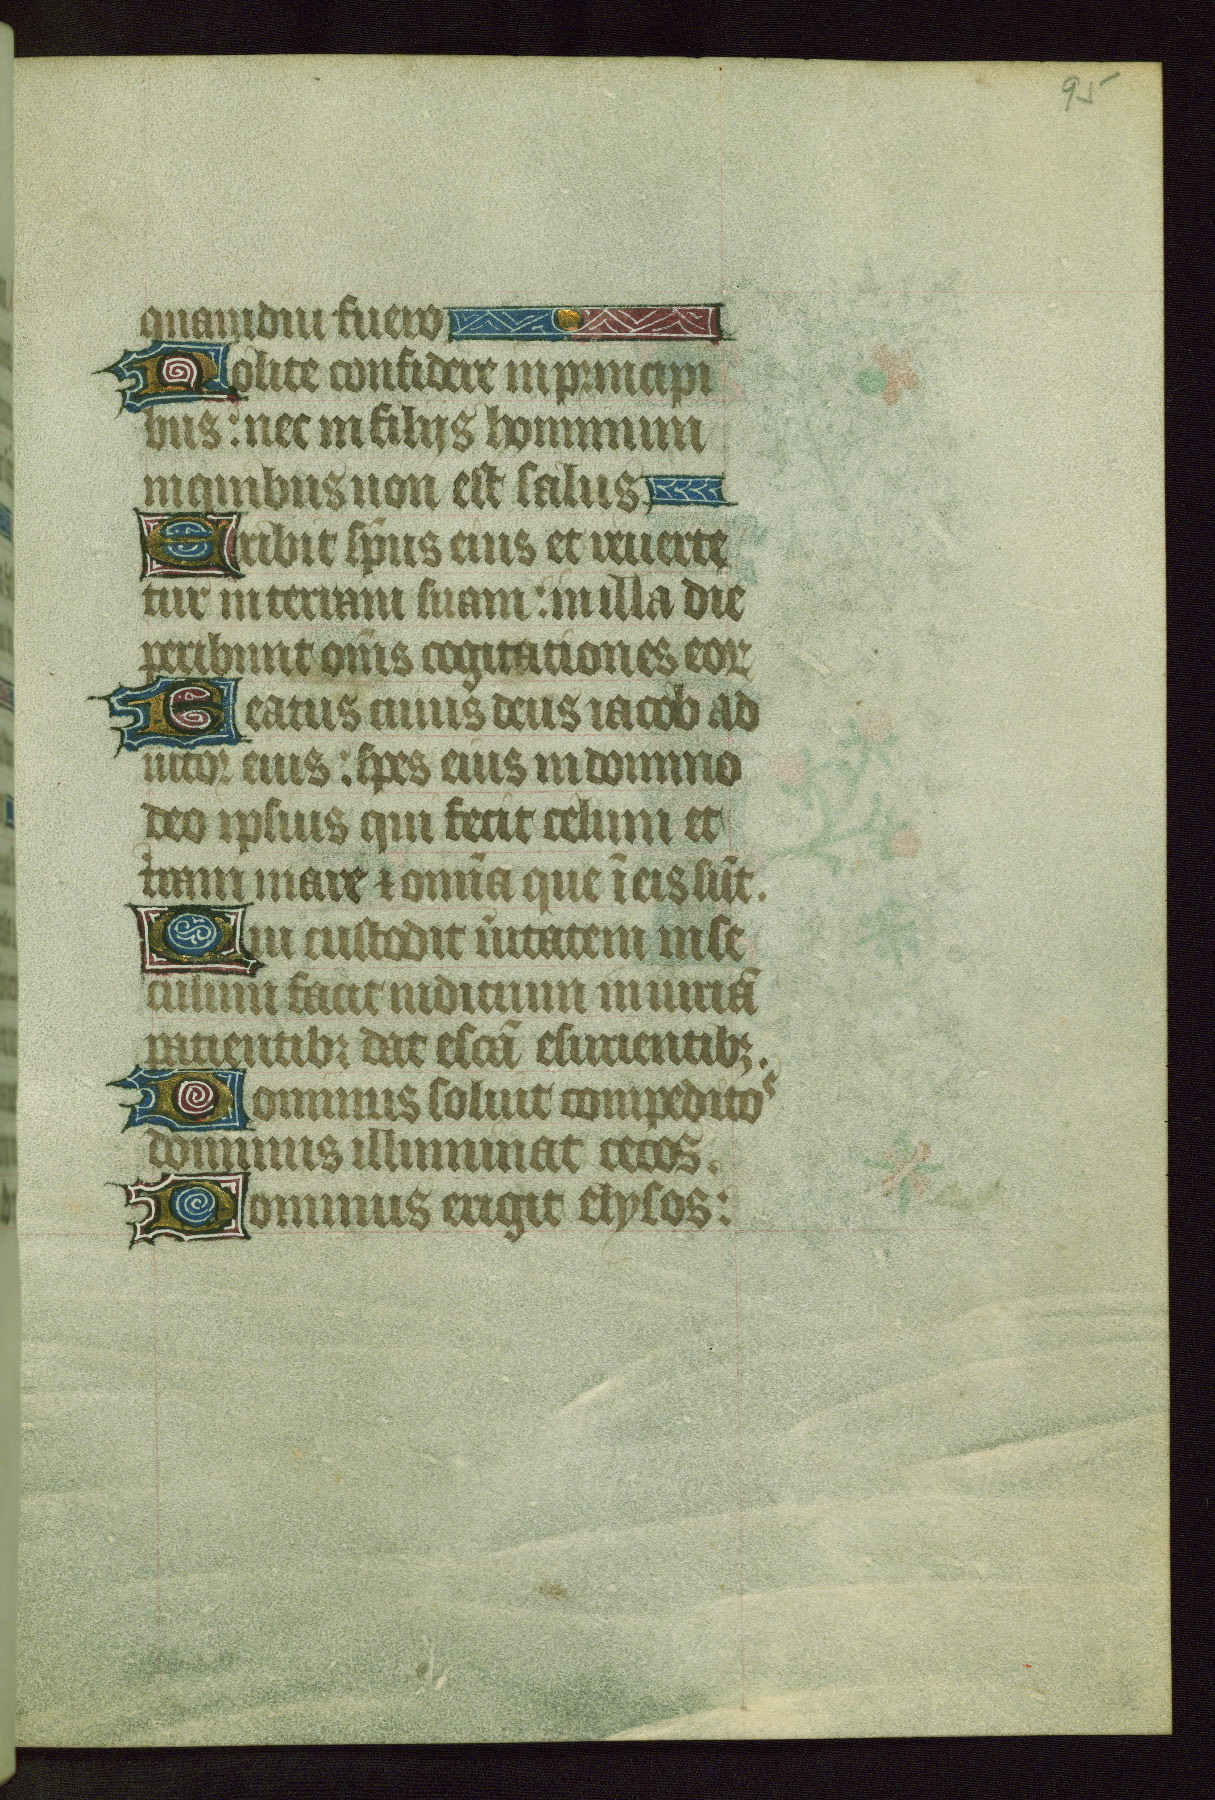 95
quamdiu fuero
Nolite confidere in principi
bus : nec in filijs hominum
in quibus non est salus.
Exibit sp̄us eius et reuerte
tur in terram suam : in illa die
peribunt om̄s cogitationes eoꝝ
Beatus cuius deus iacob ad
iutor eius : spes eius in domino
deo ipsius qui fecit celum et
t̄ram mare ⁊ omīa que ī eis sūt.
Qui custodit ūitatem in se
culum facit iudicium iniuriā
patientibꝫ dat escā esurientibꝫ.
Dominus soluit compeditoˢ
dominus illuminat cecos.
Dominus erigit elysos :